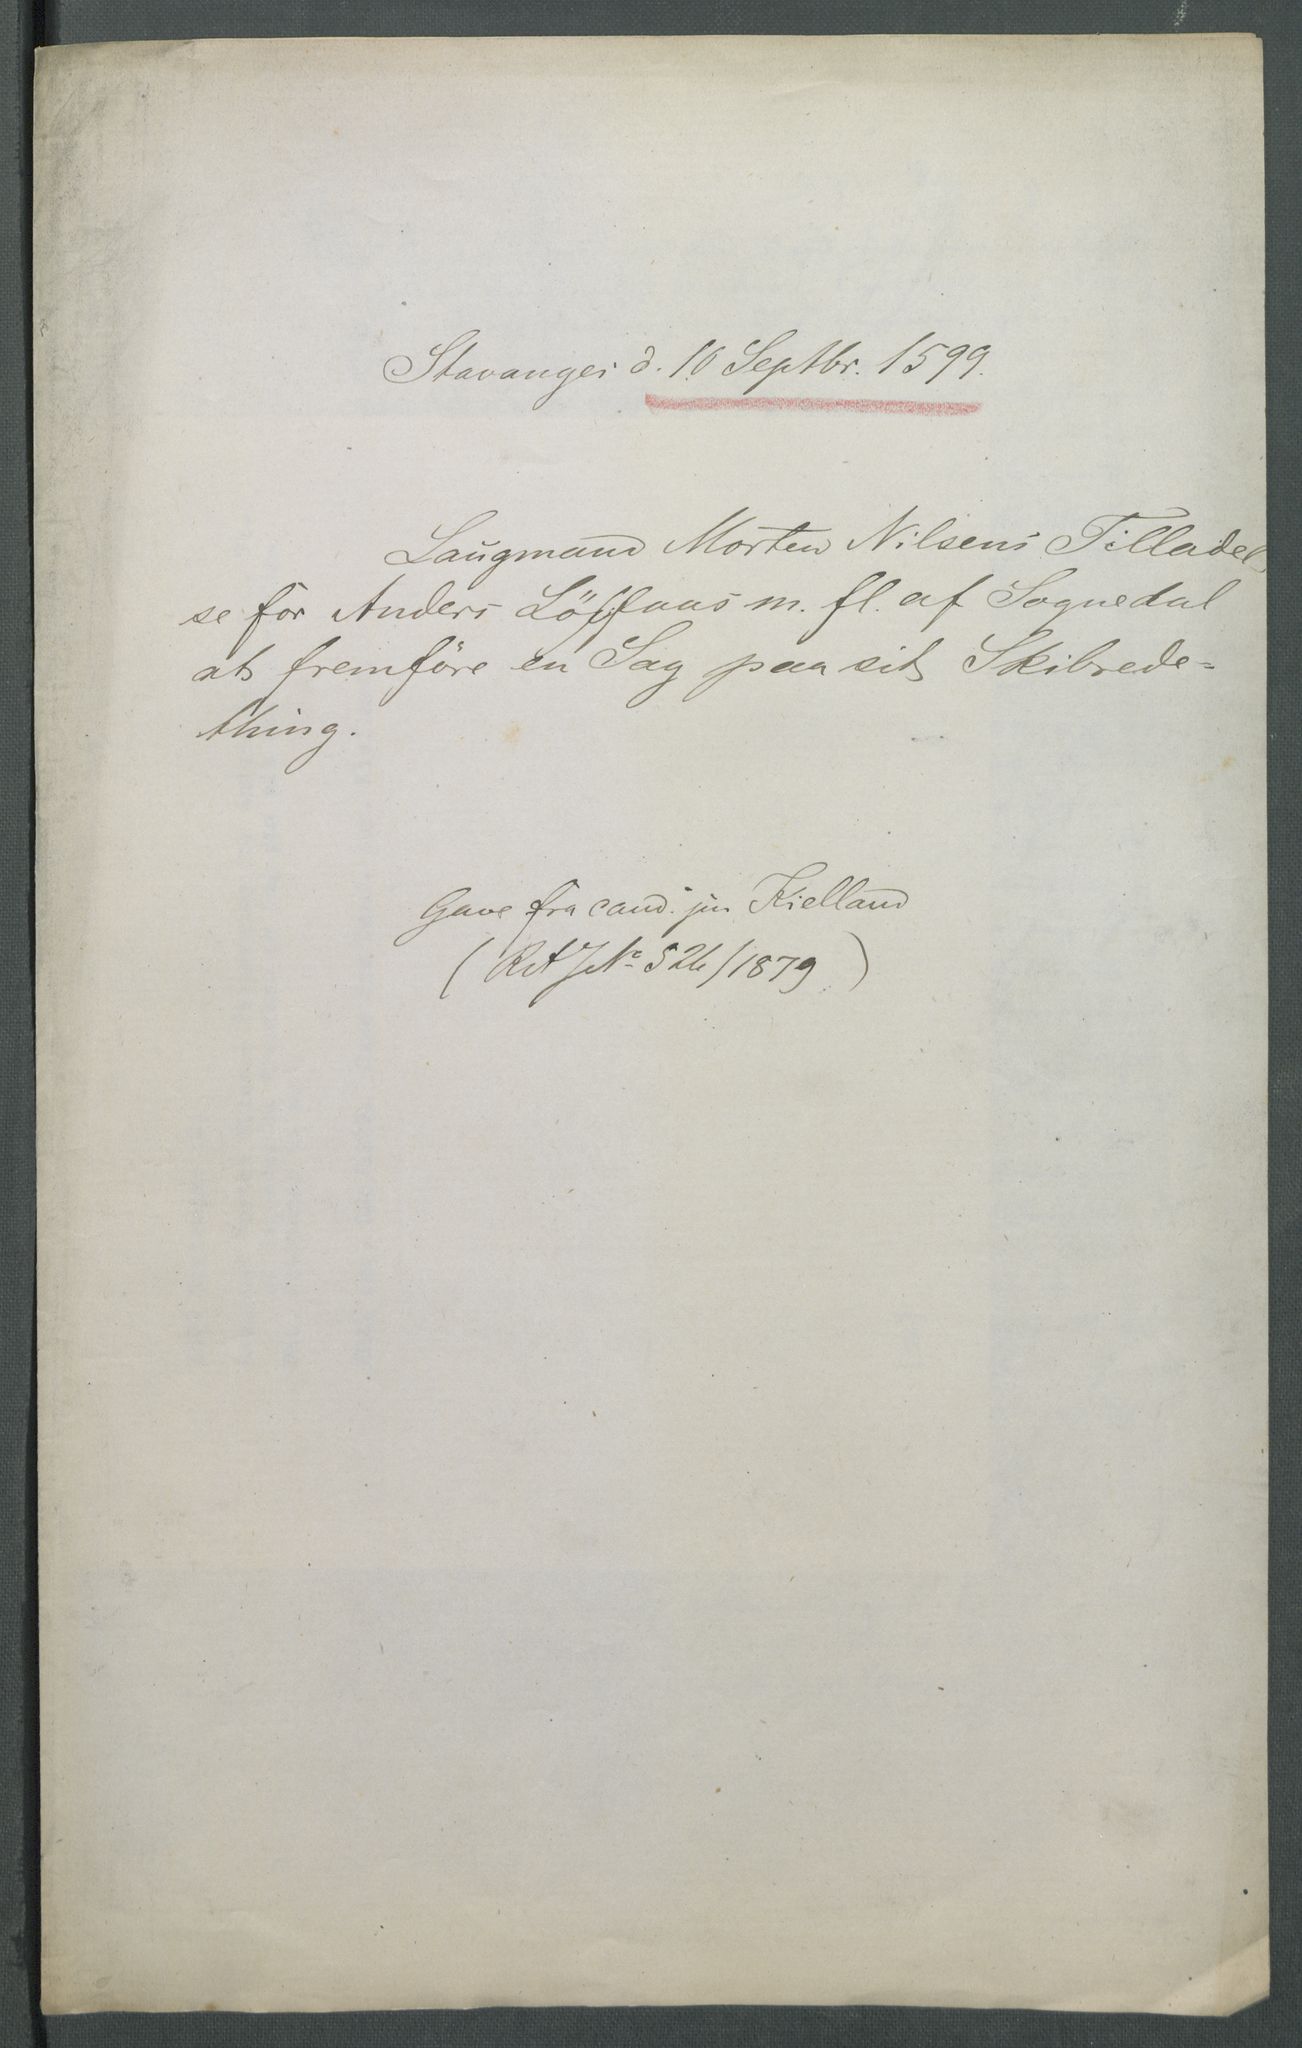 Stavanger d. 10 Septbr. 1599.
Laugmand Morten Nilsens Tilladel
se for Anders Löffaas m. fl. af Sognedal
at fremföre en Sag paa sit Skibrede-
thing.
Gave fra cand. jur Kielland
(RA JNo 526/1879)